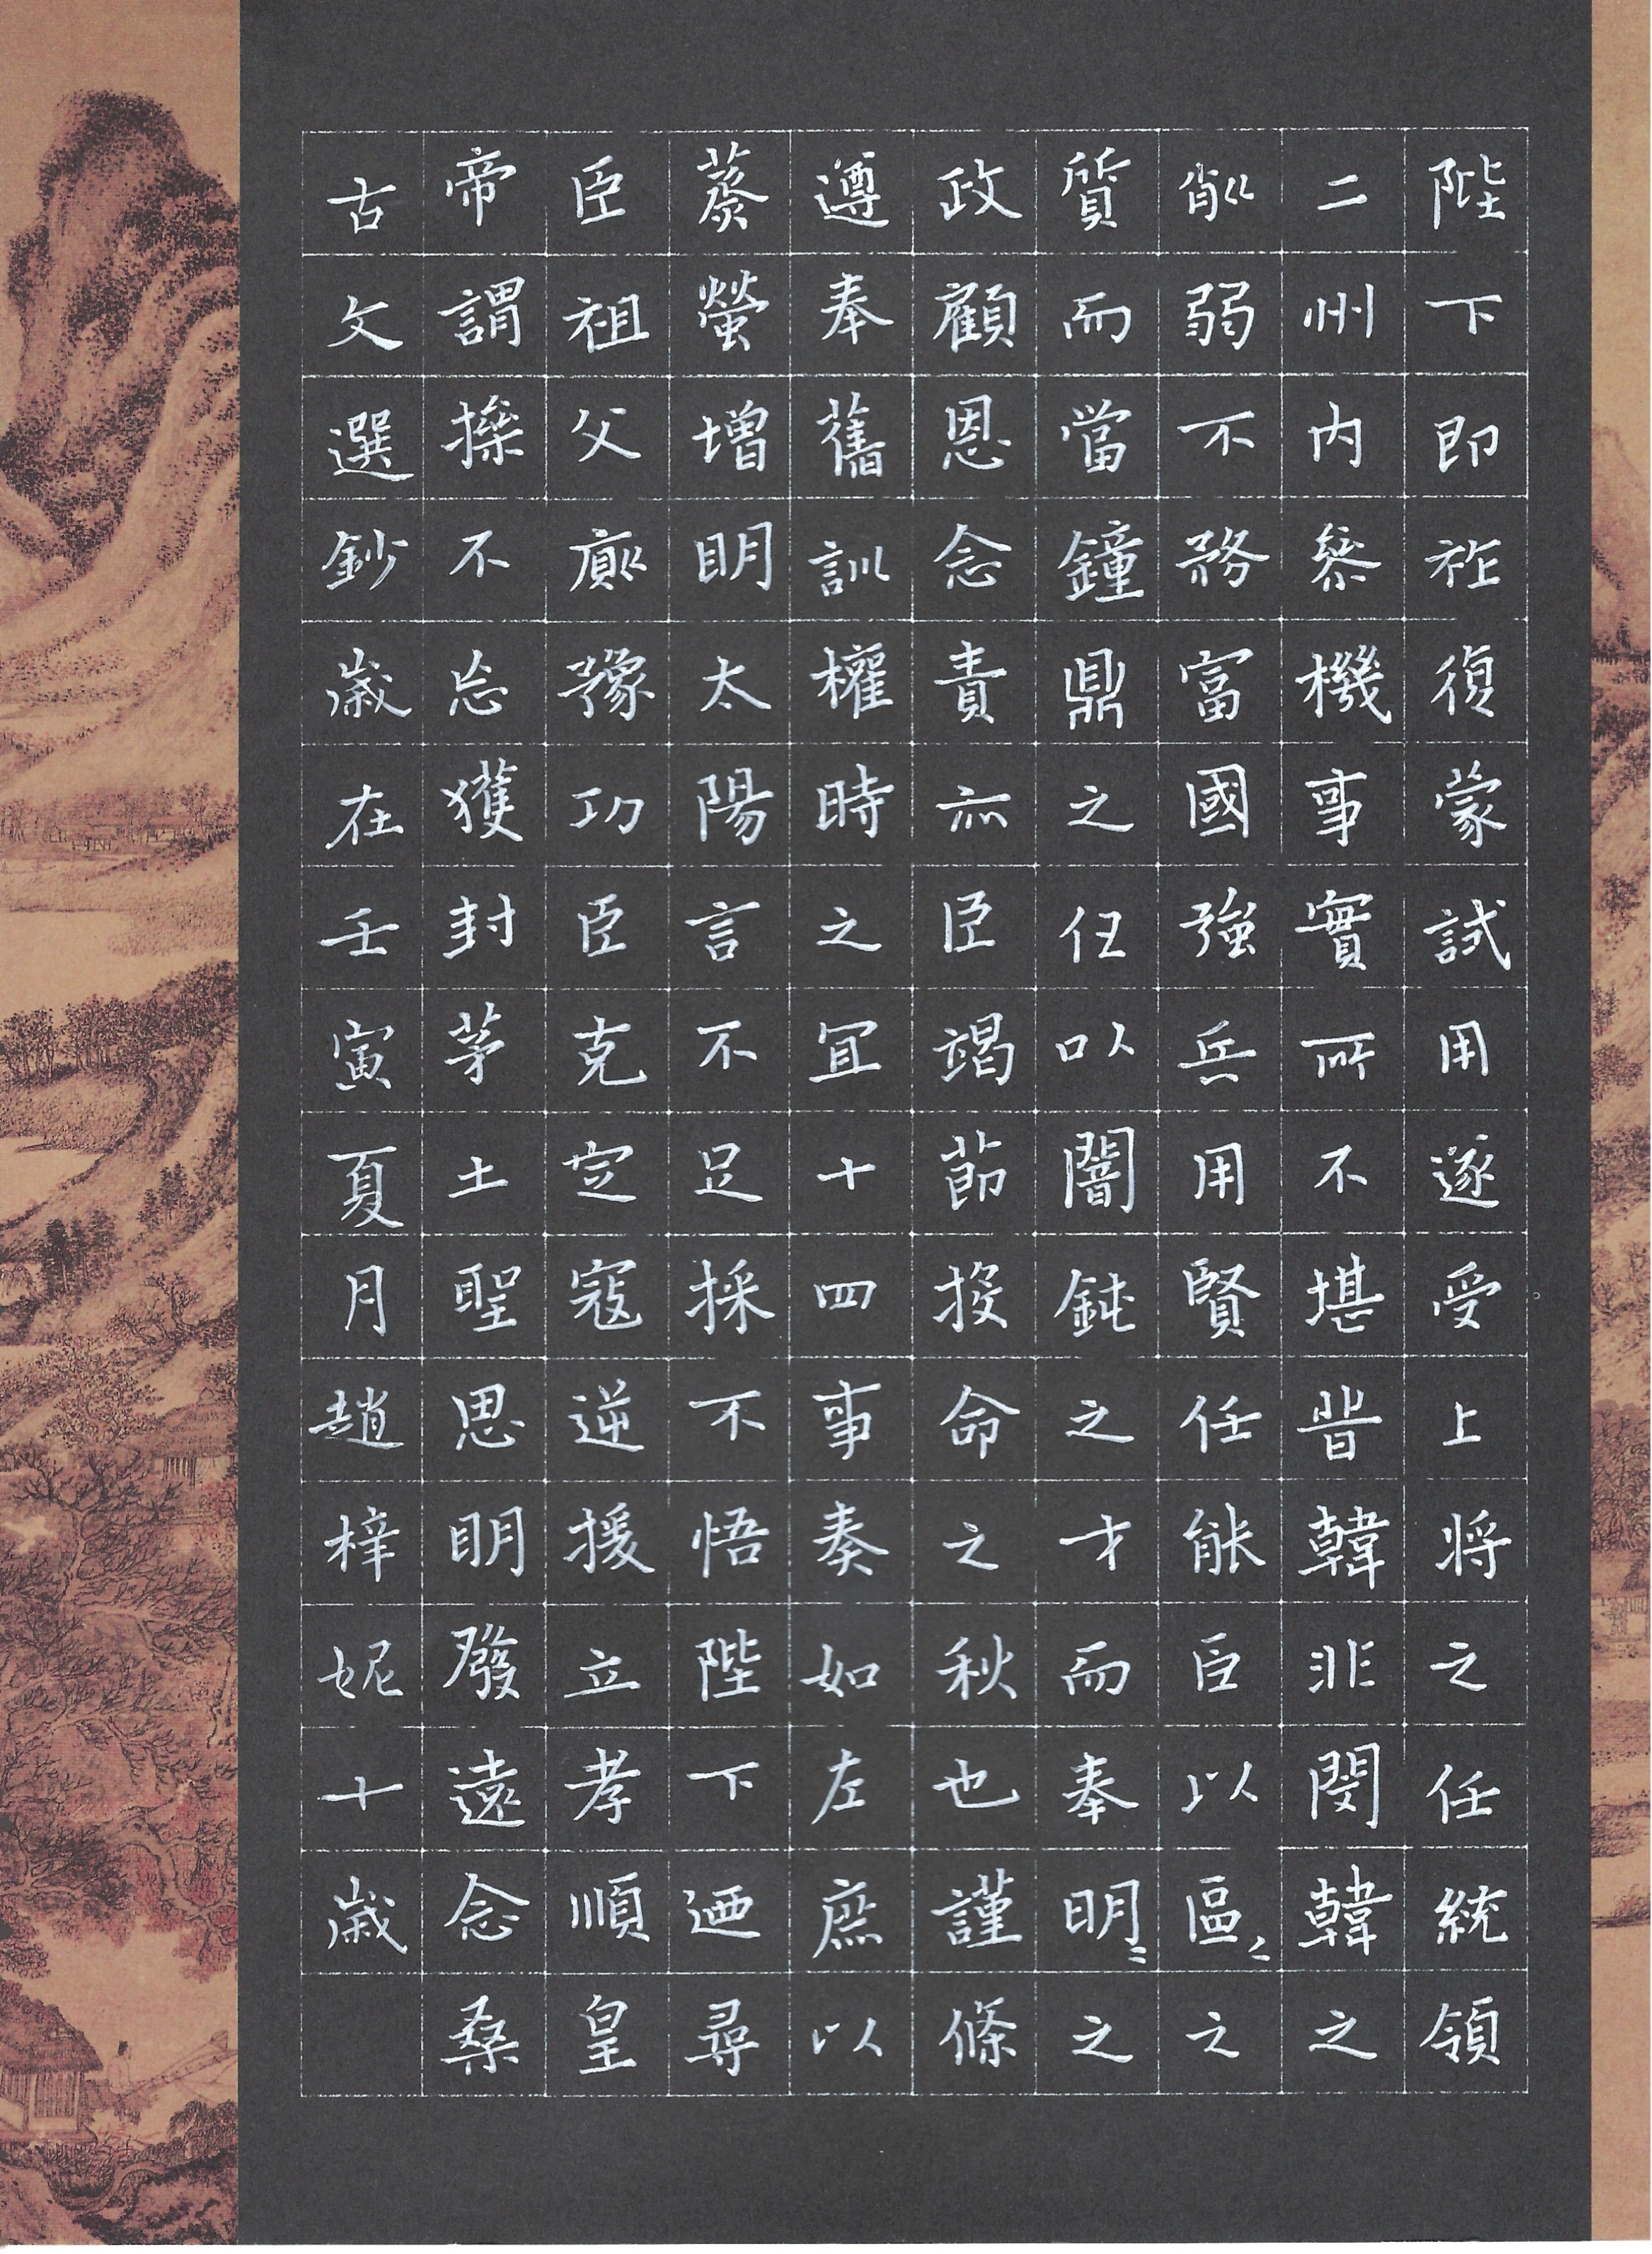 陛下即祚復蒙試用遂受上將之任統領
二州內参機事實所不堪昔韓非閔韓之
削弱不務富國強兵用賢任能臣以區〻之
質而當鐘鼎之任以闇鈍之才而奉明〻之
政顧恩念責亦臣竭節投命之秋也謹條
遵奉舊訓權時之宜十四事奏如左庶以
蒸螢增明太陽言不足採不悟陛下迺尋
臣祖父廞豫功臣克定寇逆援立孝順皇
帝謂操不忘獲封茅土聖恩明發遠念桑
古文選鈔歲在壬寅夏月趙梓妮十歲